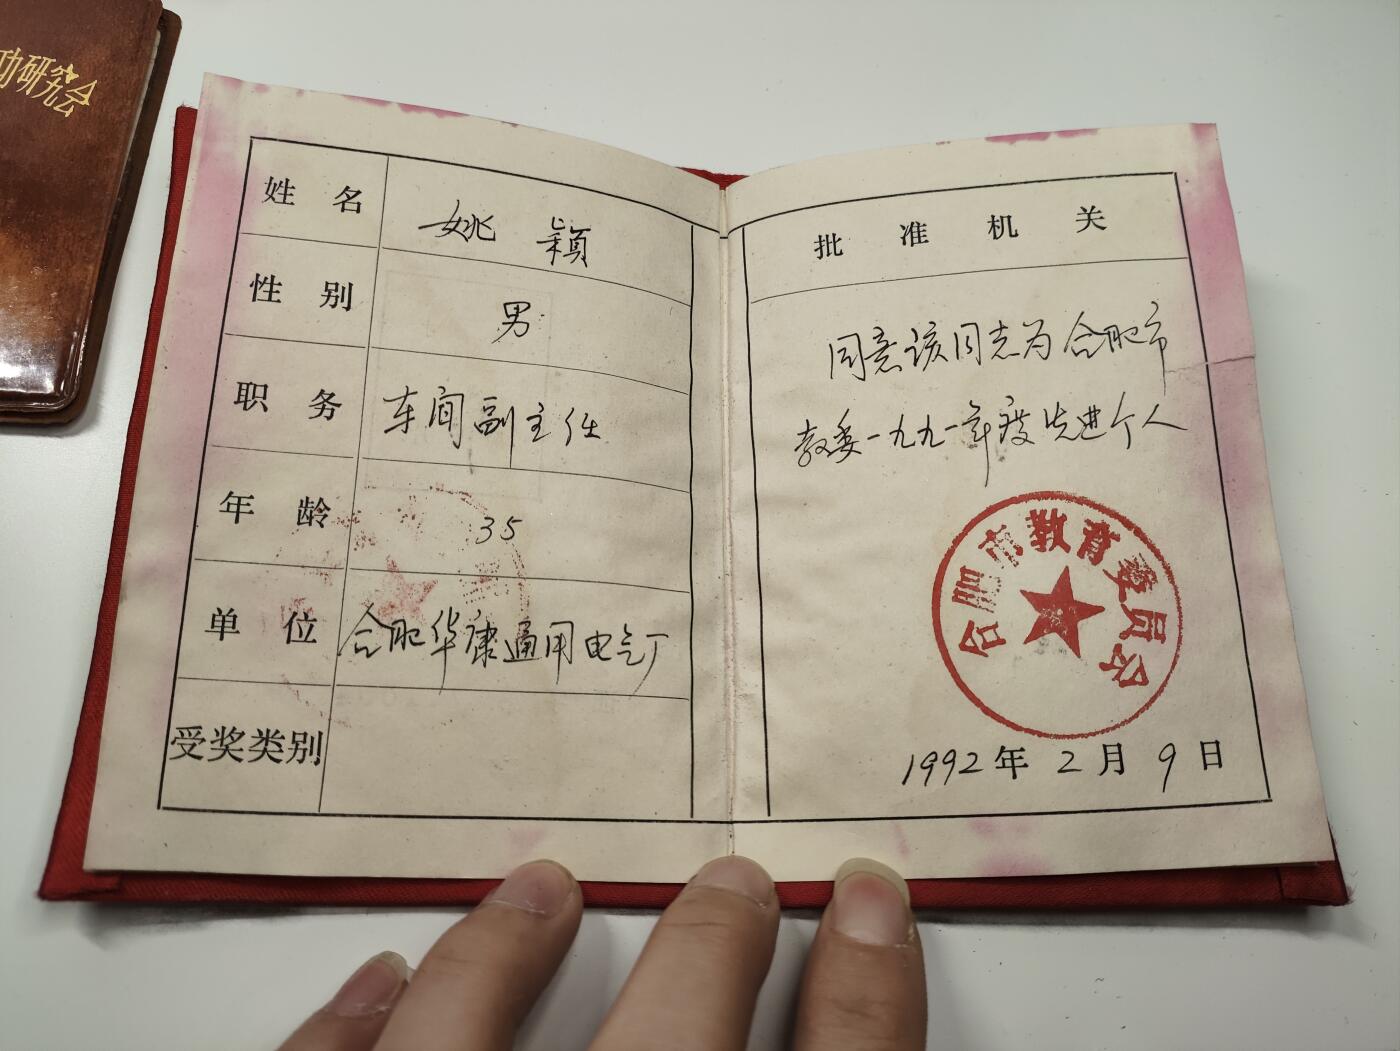 功研究会
姓名 姚颖
性别 男
职务 车间副主任
年龄 35
单位 合肥华康通用电气厂
受奖类别
批准机关
同意该同志为合肥市
教委一九九一年度先进个人
合肥市教育委员会
1992年2月9日